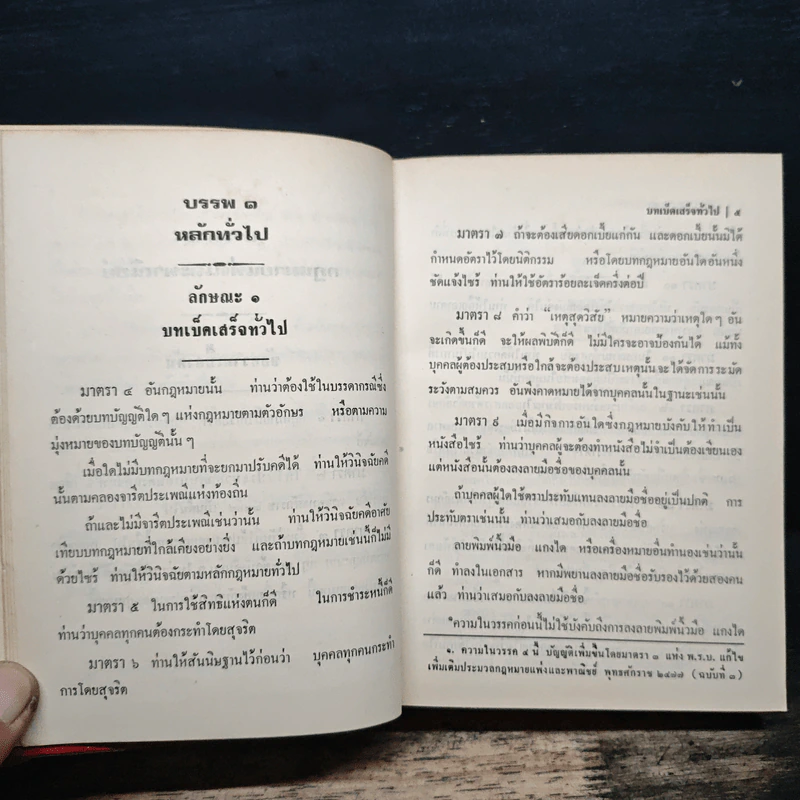 บรรพ ๑
หลักทั่วไป
ลักษณะ ๑
บทเบ็ดเสร็จทั่วไป
มาตรา ๔ อันกฎหมายนั้น ท่านว่าต้องใช้ในบรรดากรณีซึ่ง
ต้องด้วยบทบัญญัติใด ๆ แห่งกฎหมายตามตัวอักษร หรือตามความ
มุ่งหมายของบทบัญญัตินั้น ๆ
เมื่อใดไม่มีบทกฎหมายที่จะยกมาปรับคดีได้ ท่านให้วินิจฉัยคดี
นั้นตามคลองจารีตประเพณีแห่งท้องถิ่น
ถ้าและไม่มีจารีตประเพณีเช่นว่านั้น ท่านให้วินิจฉัยคดีอาศัย
เทียบบทกฎหมายที่ใกล้เคียงอย่างยิ่ง และถ้าบทกฎหมายเช่นนี้ก็ไม่มี
ด้วยไซร้ ท่านให้วินิจฉัยตามหลักกฎหมายทั่วไป
มาตรา ๕ ในการใช้สิทธิแห่งตนก็ดี ในการชำระหนี้ก็ดี
ท่านว่าบุคคลทุกคนต้องกระทำโดยสุจริต
มาตรา ๖ ท่านให้สันนิษฐานไว้ก่อนว่า บุคคลทุกคนกระทำ
การโดยสุจริต
บทเบ็ดเสร็จทั่วไป | ๕
มาตรา ๗ ถ้าจะต้องเสียดอกเบี้ยแก่กัน และดอกเบี้ยนั้นมิได้
กำหนดอัตราไว้โดยนิติกรรม หรือโดยบทกฎหมายอันใดอันหนึ่ง
ชัดแจ้งไซร้ ท่านให้ใช้อัตราร้อยละเจ็ดครึ่งต่อปี
มาตรา ๘ คำว่า "เหตุสุดวิสัย" หมายความว่าเหตุใด ๆ อัน
จะเกิดขึ้นก็ดี จะให้ผลพิบัติก็ดี ไม่มีใครจะอาจป้องกันได้ แม้ทั้ง
บุคคลผู้ต้องประสบหรือใกล้จะต้องประสบเหตุนั้นจะได้จัดการระมัด
ระวังตามสมควร อันพึงคาดหมายได้จากบุคคลนั้นในฐานะเช่นนั้น
มาตรา ๙ เมื่อมีกิจการอันใดซึ่งกฎหมายบังคับให้ทำเป็น
หนังสือไซร้ ท่านว่าบุคคลผู้จะต้องทำหนังสือไม่จำเป็นต้องเขียนเอง
แต่หนังสือนั้นต้องลงลายมือชื่อของบุคคลนั้น
ถ้าบุคคลผู้ใดใช้ตราประทับแทนลงลายมือชื่ออยู่เป็นปกติ การ
ประทับตราเช่นนั้น ท่านว่าเสมอกับลงลายมือชื่อ
ลายพิมพ์นิ้วมือ แกงได หรือเครื่องหมายอื่นทำนองเช่นว่านั้น
ก็ดี ทำลงในเอกสาร หากมีพยานลงลายมือชื่อรับรองไว้ด้วยสองคน
แล้ว ท่านว่าเสมอกับลงลายมือชื่อ
ความในวรรคก่อนนี้ไม่ใช้บังคับถึงการลงลายพิมพ์นิ้วมือ แกงได
๑. ความในวรรค ๔ นี้ บัญญัติเพิ่มขึ้นโดยมาตรา ๓ แห่ง พ.ร.บ. แก้ไข
เพิ่มเติมประมวลกฎหมายแพ่งและพาณิชย์ พุทธศักราช ๒๔๗๗ (ฉบับที่ ๓)